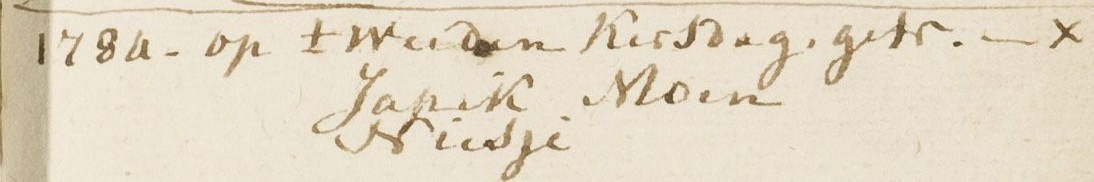 1784 - op tweeden Kersdag. getr. — x
Japik Moen
Niesje